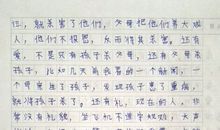 但，就杀害了他们，父母把他们养大成
人，他们不报恩，反而将其杀害。还有
爱，不是只有孩子杀父母，还有父母杀
孩子，比如几天前我看的一个新闻，一
个母亲生了孩子，发现孩子患了重病，
就将孩子杀了。还有礼，现在的人，非
常没有礼貌，坐飞机不遵守规则，大声